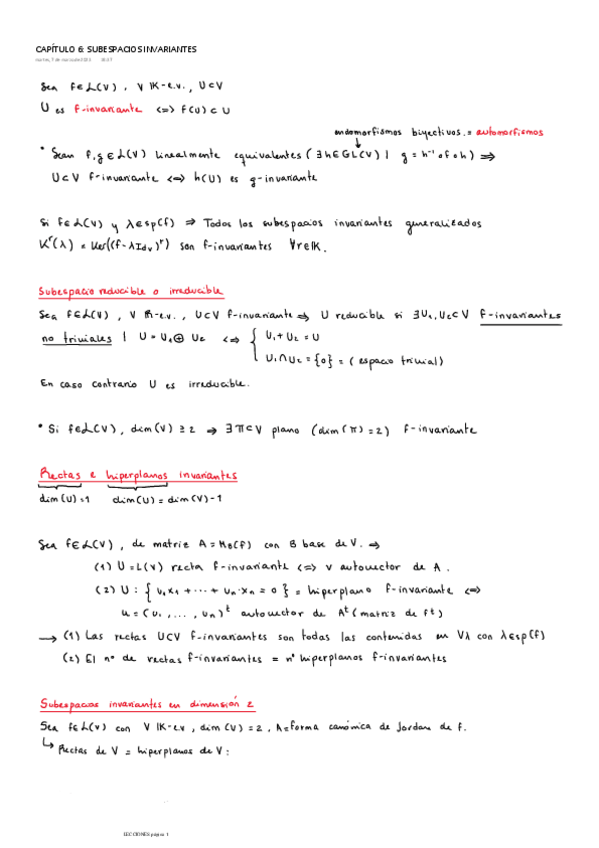 CAPÍTULO 6: SUBESPACIOS INVARIANTES
Sea f∈L(V), V K-e.v., U⊂V
U es f-invariante <=> f(U) ⊂ U
endomorfismos biyectivos = automorfismos
* Sean f,g∈L(V) linealmente equivalentes (∃h∈GL(V) | g = h⁻¹∘f∘h) ⇒
U⊂V f-invariante <=> h(U) es g-invariante
Si f∈L(V) y λ∈sp(f) ⇒ Todos los subespacios invariantes generalizados
Kʳ(λ) = Ker((f-λIdᵥ)ʳ) son f-invariantes ∀r∈K.
Subespacio reducible o irreducible
Sea f∈L(V), V K-e.v., U⊂V f-invariante ⇒ U reducible si ∃U₁,U₂⊂V f-invariantes
no triviales | U = U₁⊕U₂ <=> { U₁+U₂ = U
U₁∩U₂ = {0} = (espacio trivial)
En caso contrario U es irreducible.
* Si f∈L(V), dim(V) ≥ 2 ⇒ ∃π⊂V plano (dim(π)=2) f-invariante
Rectas e hiperplanos invariantes
dim(U)=1 dim(U) = dim(V)-1
Sea f∈L(V), de matriz A = M_B(f) con B base de V. ⇒
(1) U = L(v) recta f-invariante <=> v autovector de A.
(2) U: {u₁x₁ + ... + uₙ·xₙ = 0} = hiperplano f-invariante <=>
u = (u₁, ..., uₙ)ᵗ autovector de Aᵗ (matriz de fᵗ)
→ (1) Las rectas U⊂V f-invariantes son todas las contenidas en Vλ con λ∈sp(f)
(2) El nº de rectas f-invariantes = nº hiperplanos f-invariantes
Subespacios invariantes en dimensión 2
Sea f∈L(V) con V K-e.v, dim(V)=2, A=forma canónica de Jordan de f.
↳ Rectas de V = hiperplanos de V:
SECCIONES página 1